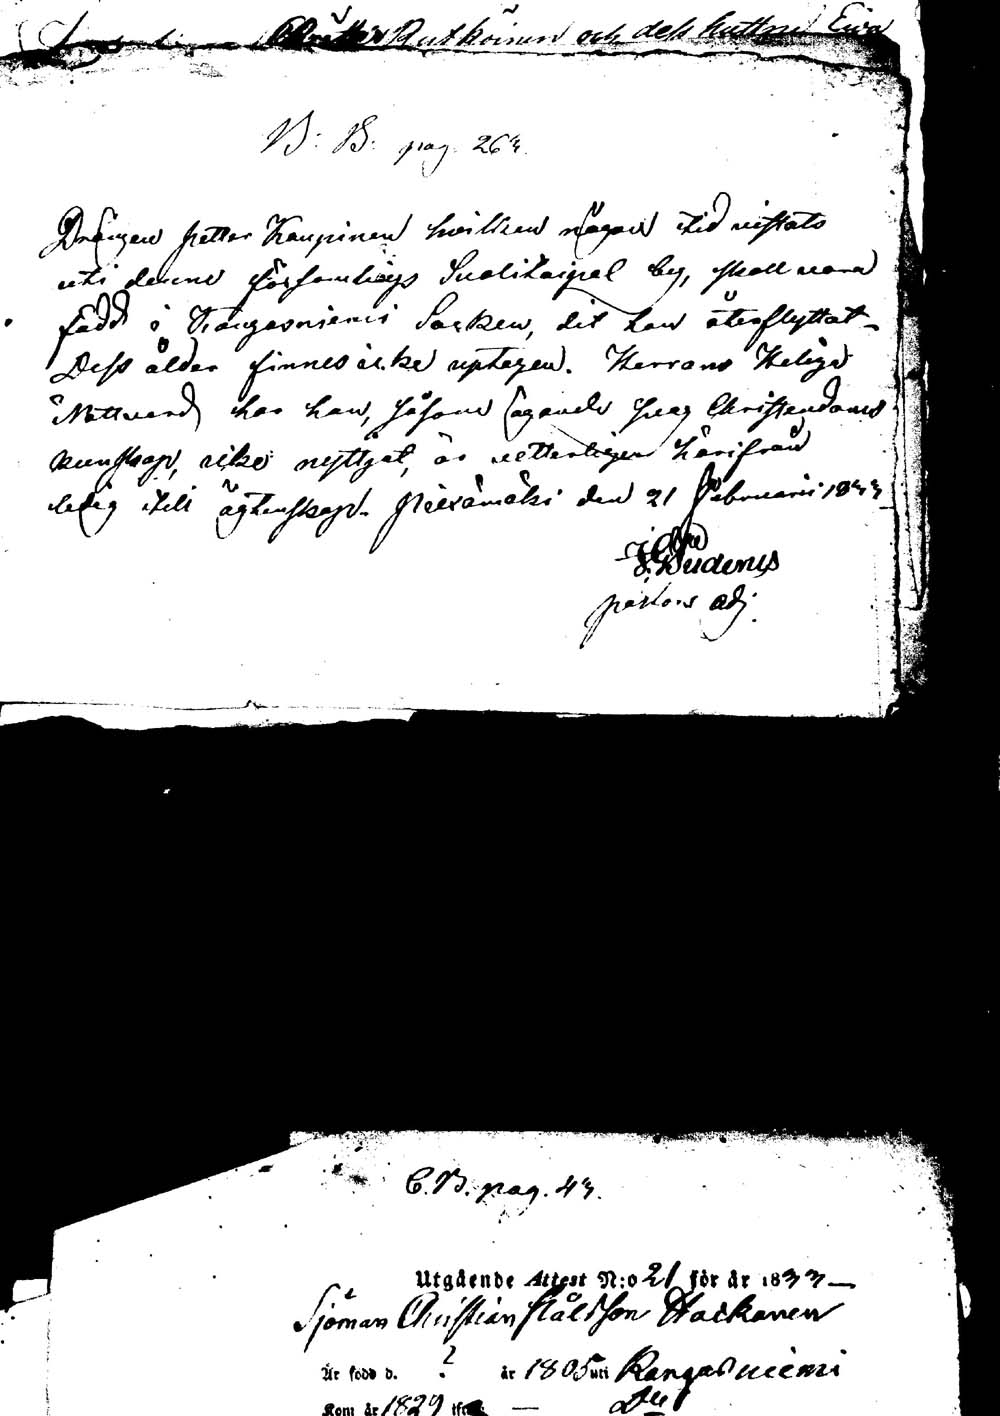 Ruthöinen och dess hustru Ewa
B: B: pag. 263.
Drängen Petter Kaupinen hvilken någon tid vistats
uti denne församlings Suolitaipal by, skall vara
född i Kangasniemi Socken, dit han återflyttat.
Dess ålder finnes icke uptagen. Herrans Heliga
Nattvard har han, såsom ägande svag Christendoms
kunskap, icke nyttjat, är vetterligen härifrån
ledig till ägtenskap. Piexämäki den 21 Februarii 1833
pastors adj.
C.B. pag. 43.
Utgående Attest N:o 21 för år 1833
Sjöman Christian Ståhlson Hackanen
Är född d. ? år 1805 uti Kangasniemi
Kom år 1829 ifrån — D:o